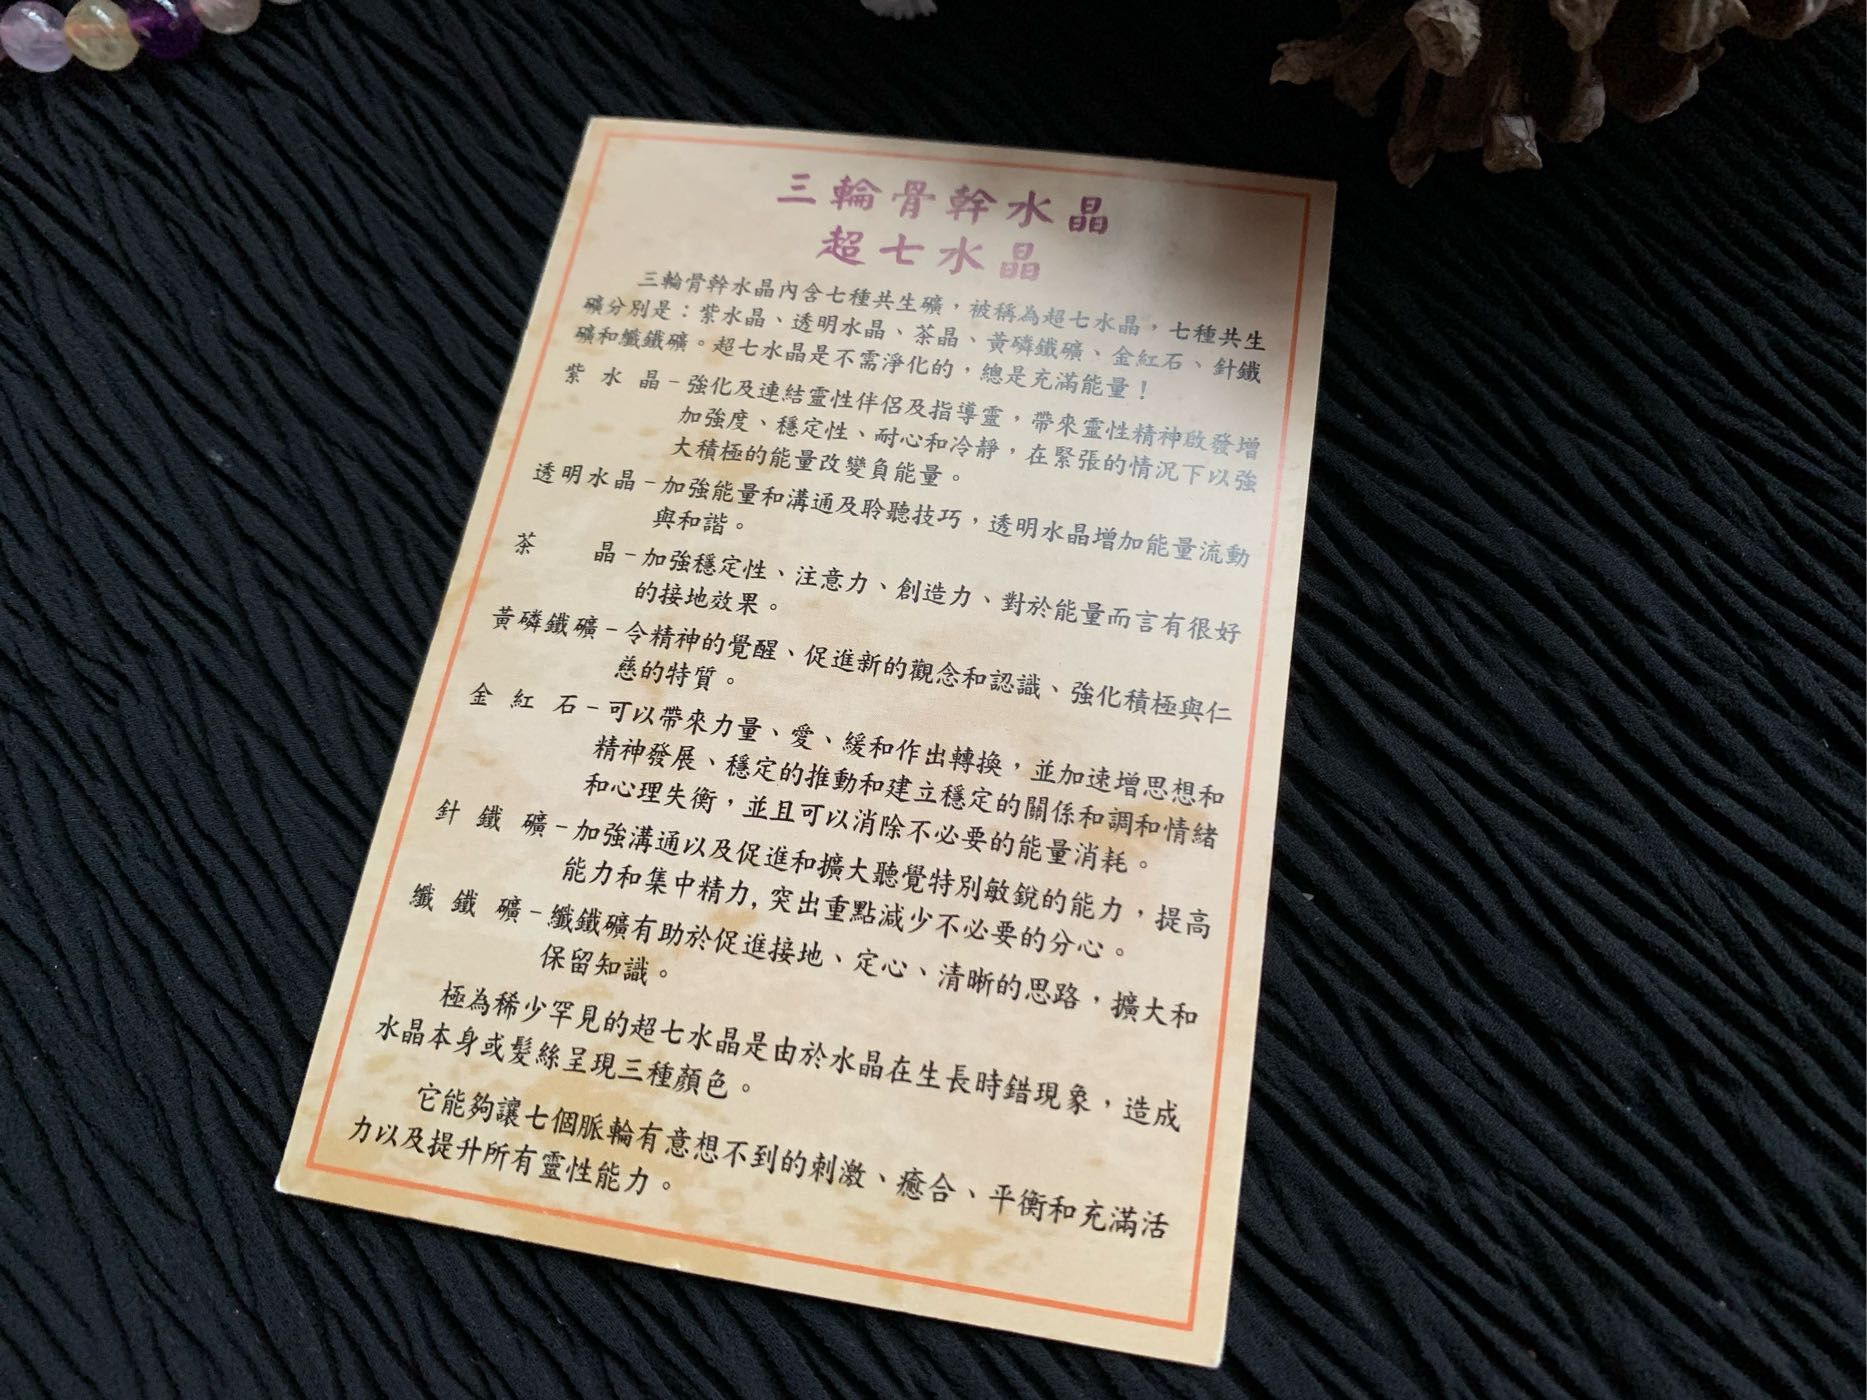 三輪骨幹水晶
超七水晶
三輪骨幹水晶內含七種共生礦，被稱為超七水晶，七種共生
礦分別是：紫水晶、透明水晶、茶晶、黃磷鐵礦、金紅石、針鐵
礦和纖鐵礦。超七水晶是不需淨化的，總是充滿能量！
紫水晶－強化及連結靈性伴侶及指導靈，帶來靈性精神啟發增
加強度、穩定性、耐心和冷靜，在緊張的情況下以強
大積極的能量改變負能量。
透明水晶－加強能量和溝通及聆聽技巧，透明水晶增加能量流動
與和諧。
茶晶－加強穩定性、注意力、創造力、對於能量而言有很好
的接地效果。
黃磷鐵礦－令精神的覺醒、促進新的觀念和認識、強化積極與仁
慈的特質。
金紅石－可以帶來力量、愛、緩和作出轉換，並加速增思想和
精神發展、穩定的推動和建立穩定的關係和調和情緒
和心理失衡，並且可以消除不必要的能量消耗。
針鐵礦－加強溝通以及促進和擴大聽覺特別敏銳的能力，提高
能力和集中精力,突出重點減少不必要的分心。
纖鐵礦－纖鐵礦有助於促進接地、定心、清晰的思路，擴大和
保留知識。
極為稀少罕見的超七水晶是由於水晶在生長時錯現象，造成
水晶本身或髮絲呈現三種顏色。
它能夠讓七個脈輪有意想不到的刺激、癒合、平衡和充滿活
力以及提升所有靈性能力。